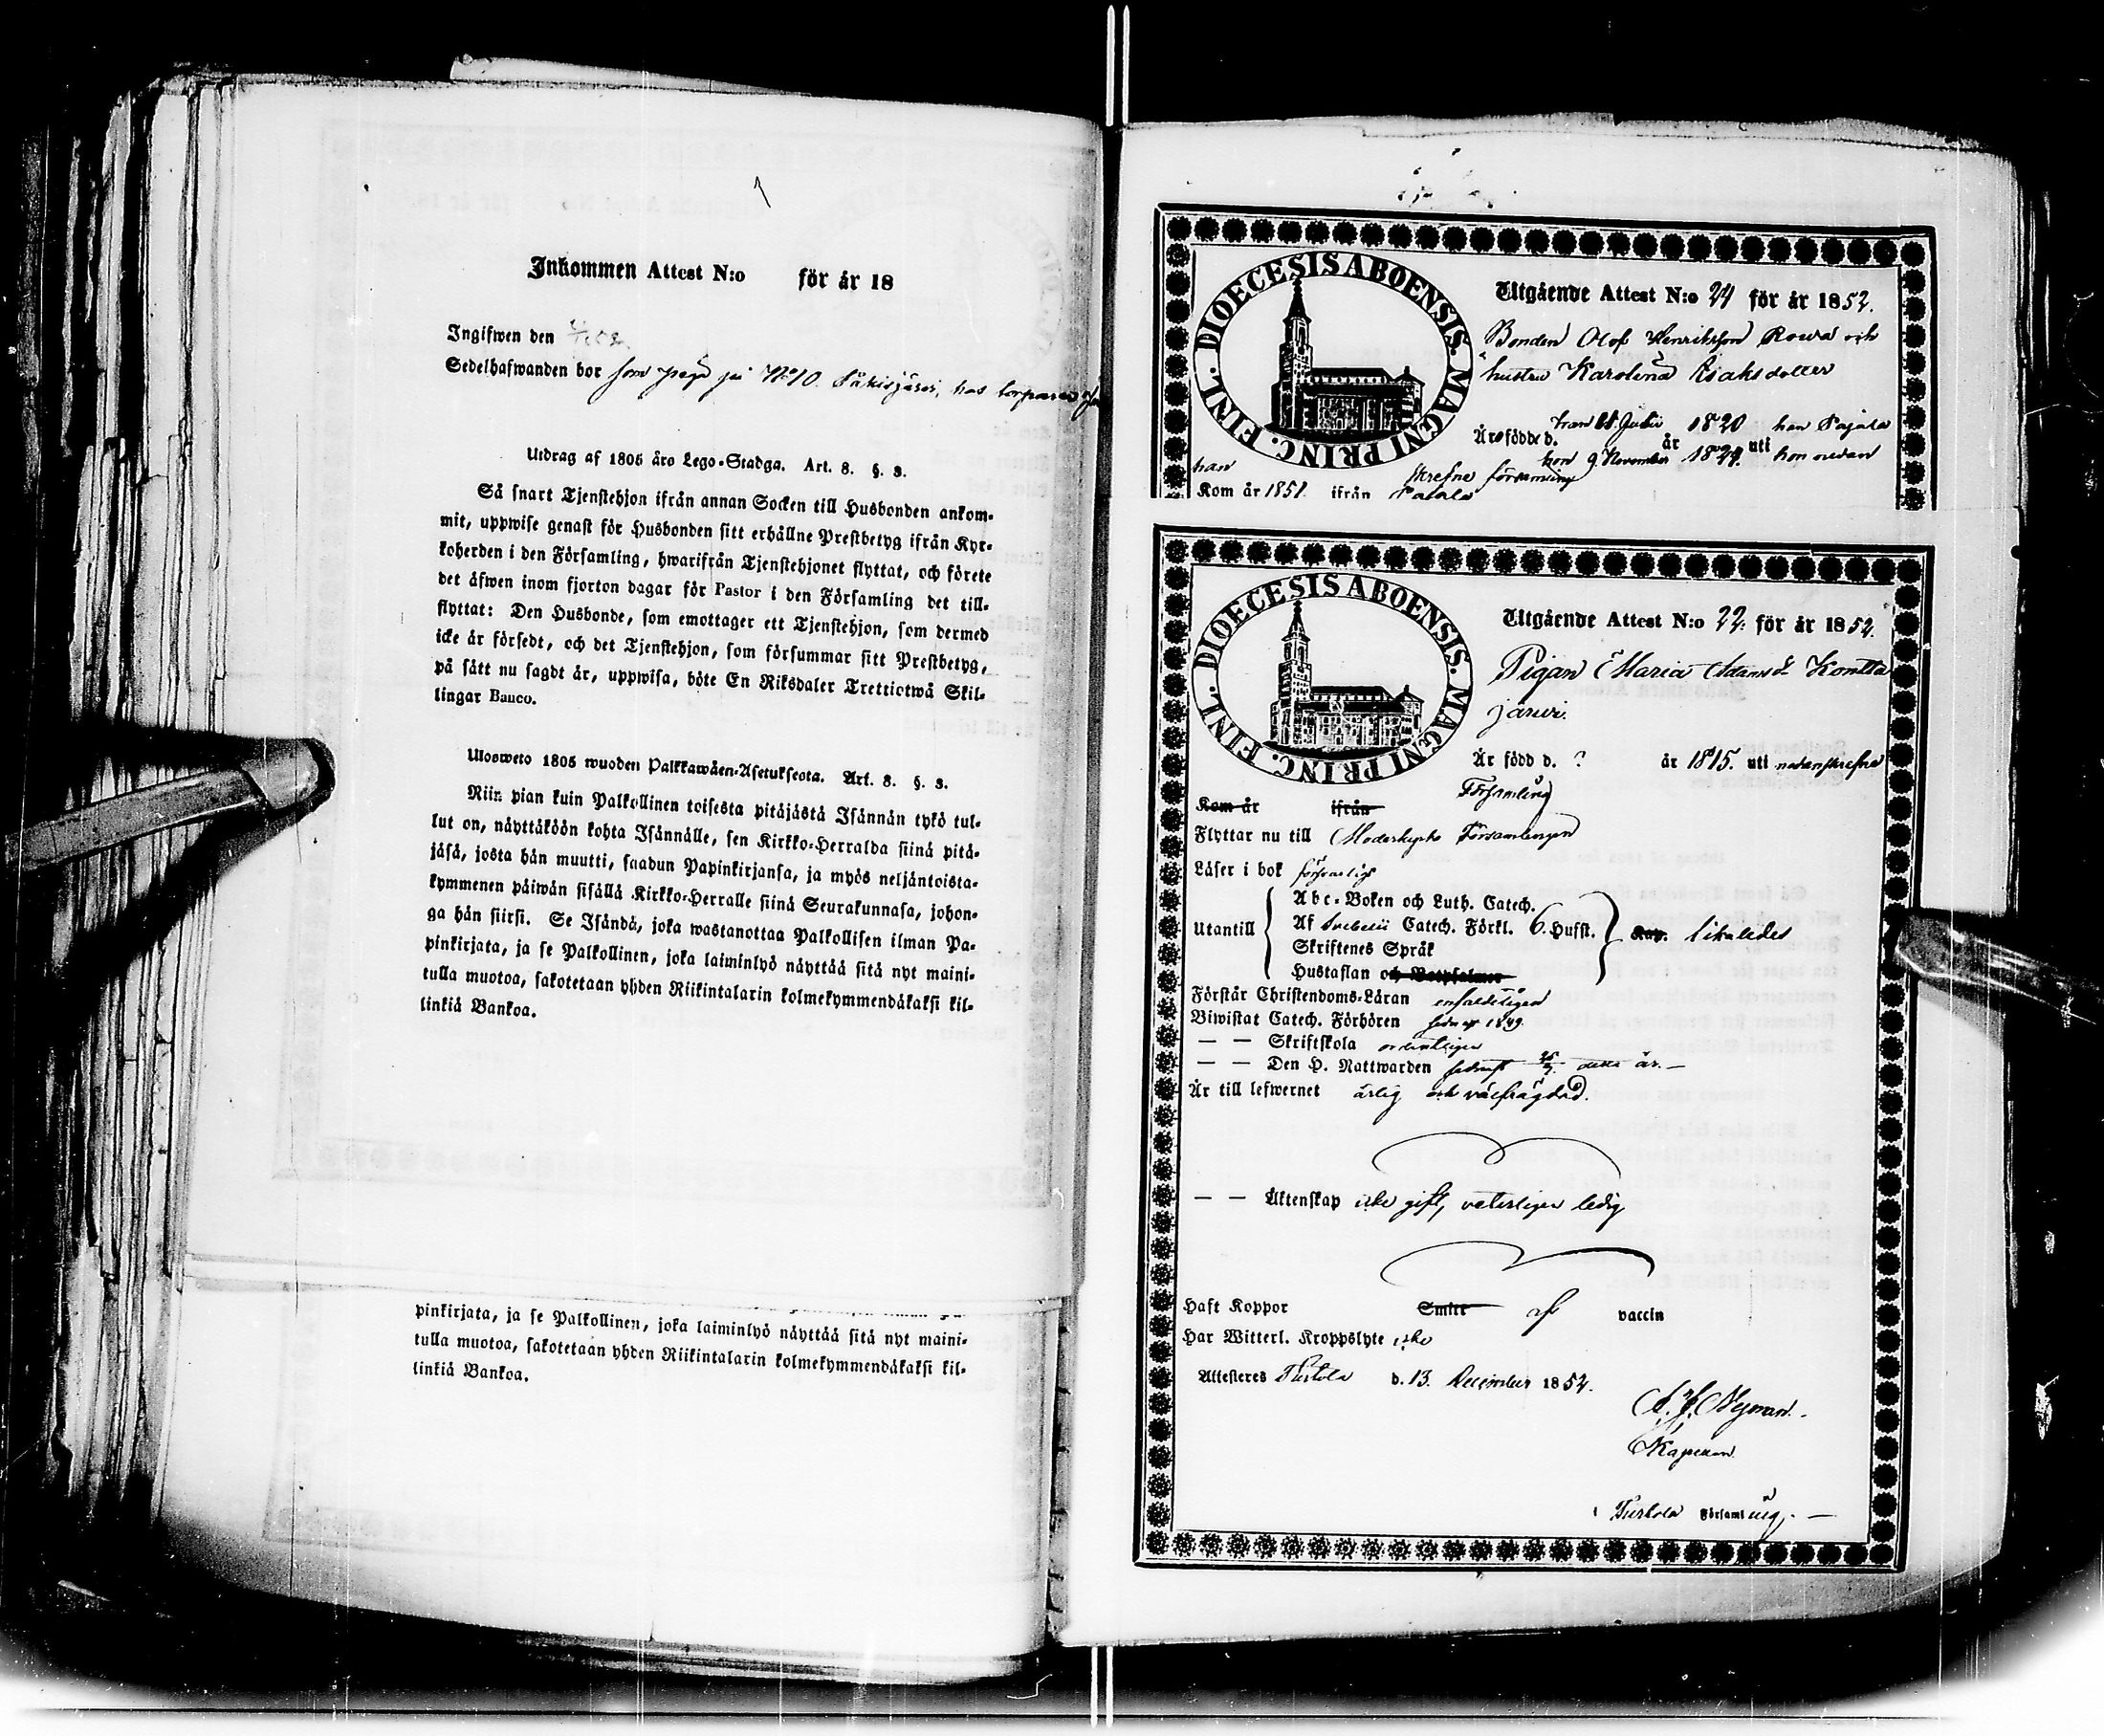 Inkommen Attest N:o för år 18
Ingifwen den
Sedelhafwanden bor som piga på No 10. Säkisjärvi, hos torparen
Utdrag af 1805 års Lego-Stadga. Art. 8. §. 3.
Så snart Tjenstehjon ifrån annan Socken till Husbonden ankom-
mit, uppwise genast för Husbonden sitt erhållne Prestbetyg ifrån Kyr-
koherden i den Församling, hwarifrån Tjenstehjonet flyttat, och förete
det äfwen inom fjorton dagar för Pastor i den Församling det till-
flyttat: Den Husbonde, som emottager ett Tjenstehjon, som dermed
icke är försedt, och det Tjenstehjon, som försummar sitt Prestbetyg,
på sätt nu sagdt är, uppwisa, böte En Riksdaler Trettiotwå Skil-
lingar Banco.
Ulosweto 1805 wuoden Palkkawäen-Asetuksesta. Art. 8. §. 3.
Niin pian kuin Palkollinen toisesta pitäjästä Isännän tykö tul-
lut on, näyttäköön kohta Isännälle, sen Kirkko-Herralda siinä pitä-
jäsä, josta hän muutti, saadun Papinkirjansa, ja myös neljäntoista-
kymmenen päiwän sisällä Kirkko-Herralle siinä Seurakunnasa, johon-
ga hän siirsi. Se Isändä, joka wastanottaa Palkollisen ilman Pa-
pinkirjata, ja se Palkollinen, joka laiminlyö näyttää sitä nyt maini-
tulla muotoa, sakotetaan yhden Riikintalarin kolmekymmendäkaksi kil-
linkiä Bankoa.
pinkirjata, ja se Palkollinen, joka laiminlyö näyttää sitä nyt maini-
tulla muotoa, sakotetaan yhden Riikintalarin kolmekymmendäkaksi kil-
linkiä Bankoa.
DIOECESIS ABOENSIS. MAGNI PRINC. FINL.
Utgående Attest N:o 24 för år 1852.
Bonden Olof Henriksson Rowa och
hustru Karolina Isaksdotter
han 11. Julii 1820 han Pajala
Äro födde d. år uti
hon 9 November 1824. hon nedan
han skrefne församling
Kom år 1851. ifrån Pajala
DIOECESIS ABOENSIS. MAGNI PRINC. FINL.
Utgående Attest N:o 22. för år 1852.
Pigan Maria Adamsdr Konttä
järwi.
Är född d. ? år 1815. uti nedanskrefne
Församling
Kom år ifrån
Flyttar nu till Moderkyrko Församlingen
Läser i bok försvarligt
Utantill
Abc-Boken och Luth. Catech.
Af Svebelii Catech. Förkl. 6. Hufst. Kap. likaledes
Skriftenes Språk
Hustaflan och Botpsalmer
Förstår Christendoms-Läran enfaldeligen
Biwistat Catech. Förhören sednast 1849.
— — Skriftskola ordentligen
— — Den H. Nattwarden sednast detta år. —
Är till lefwernet ärlig och välfrägdad.
— — Äktenskap icke gift, veterligen ledig
Haft Koppor Smitt af vaccin
Har Witterl. Kroppslyte icke
Attesteres Turtola d. 13. December 1852.
Nyman.
Kapellan
i Turtola Församling. —